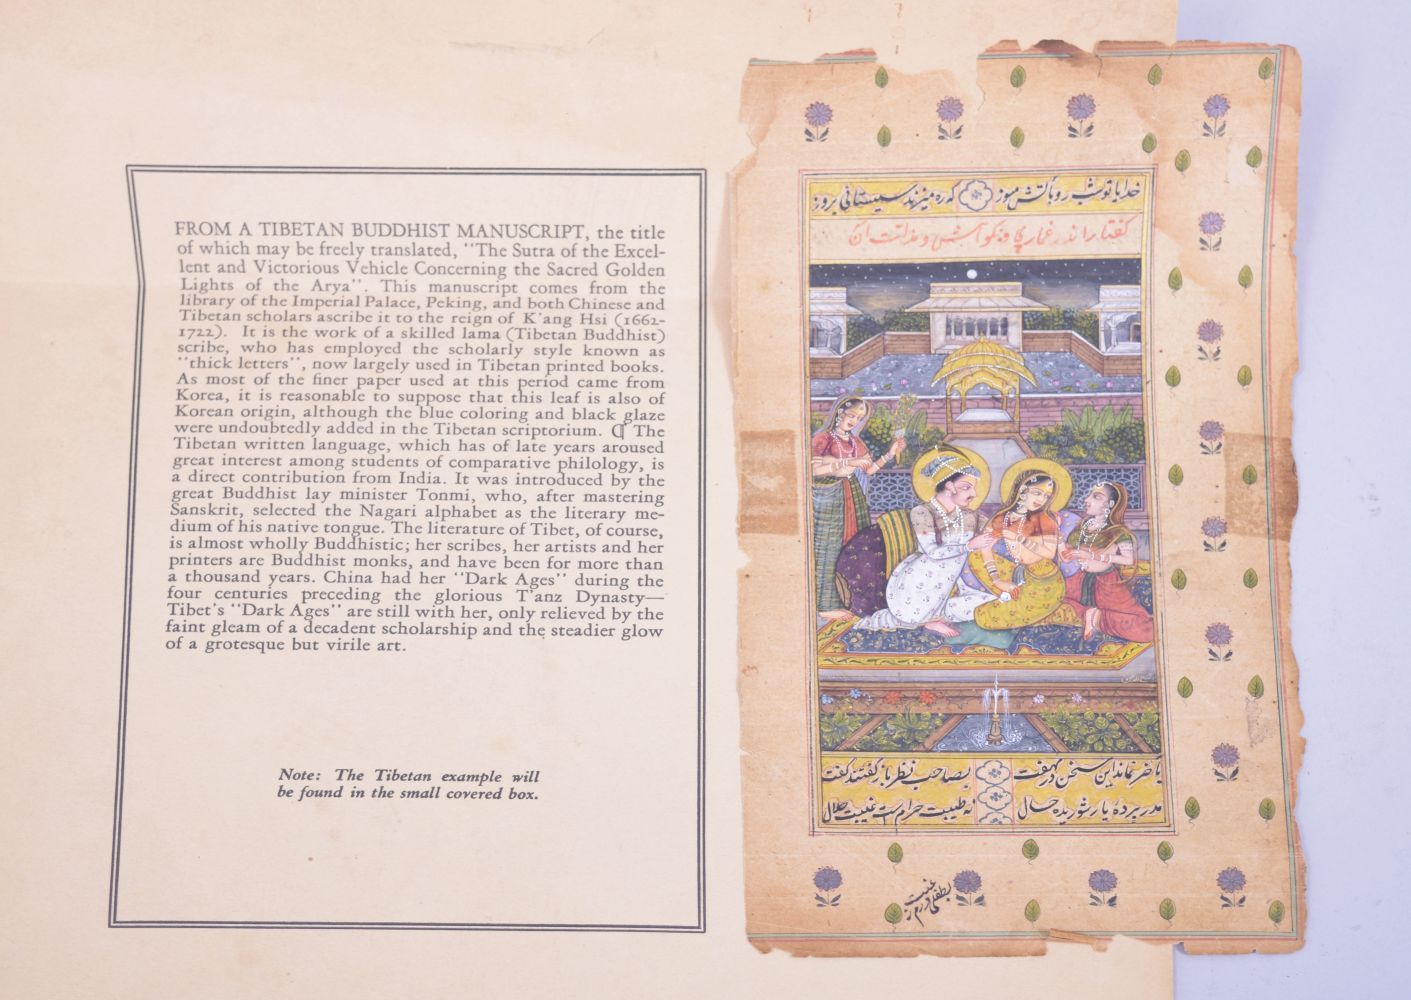 FROM A TIBETAN BUDDHIST MANUSCRIPT, the title
of which may be freely translated, "The Sutra of the Excel-
lent and Victorious Vehicle Concerning the Sacred Golden
Lights of the Arya". This manuscript comes from the
library of the Imperial Palace, Peking, and both Chinese and
Tibetan scholars ascribe it to the reign of K'ang Hsi (1662-
1722). It is the work of a skilled lama (Tibetan Buddhist)
scribe, who has employed the scholarly style known as
"thick letters", now largely used in Tibetan printed books.
As most of the finer paper used at this period came from
Korea, it is reasonable to suppose that this leaf is also of
Korean origin, although the blue coloring and black glaze
were undoubtedly added in the Tibetan scriptorium. ¶ The
Tibetan written language, which has of late years aroused
great interest among students of comparative philology, is
a direct contribution from India. It was introduced by the
great Buddhist lay minister Tonmi, who, after mastering
Sanskrit, selected the Nagari alphabet as the literary me-
dium of his native tongue. The literature of Tibet, of course,
is almost wholly Buddhistic; her scribes, her artists and her
printers are Buddhist monks, and have been for more than
a thousand years. China had her "Dark Ages" during the
four centuries preceding the glorious T'anz Dynasty—
Tibet's "Dark Ages" are still with her, only relieved by the
faint gleam of a decadent scholarship and the steadier glow
of a grotesque but virile art.
Note: The Tibetan example will
be found in the small covered box.
که ره میزند سیستانی بروز
گفتار اندر
بصاحب نظر باز گفتند و گفت
نه طیبت حرام است غیبت حلال